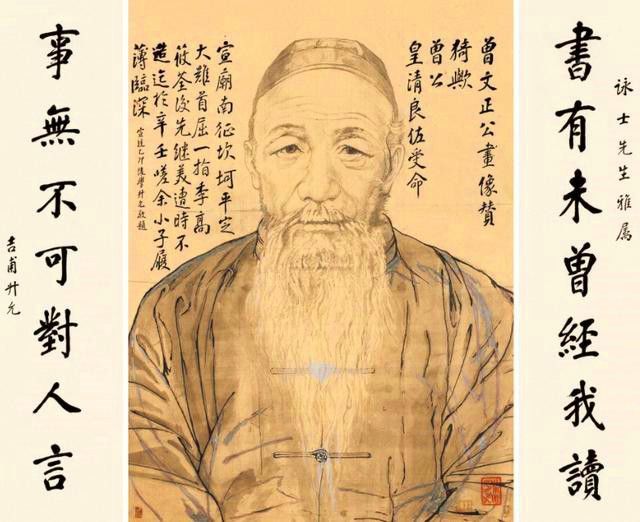 詠士先生雅屬
書有未曾經我讀
曾文正公畫像贊
猗歟
曾公
皇清良佐受命
宣廟南征坎坷平定
大難首屈一指李高
筱荃後先繼美遭時不
造迄於辛壬嗟余小子履
薄臨深
宣統乙卯後學升允敬題
事無不可對人言
吉甫升允